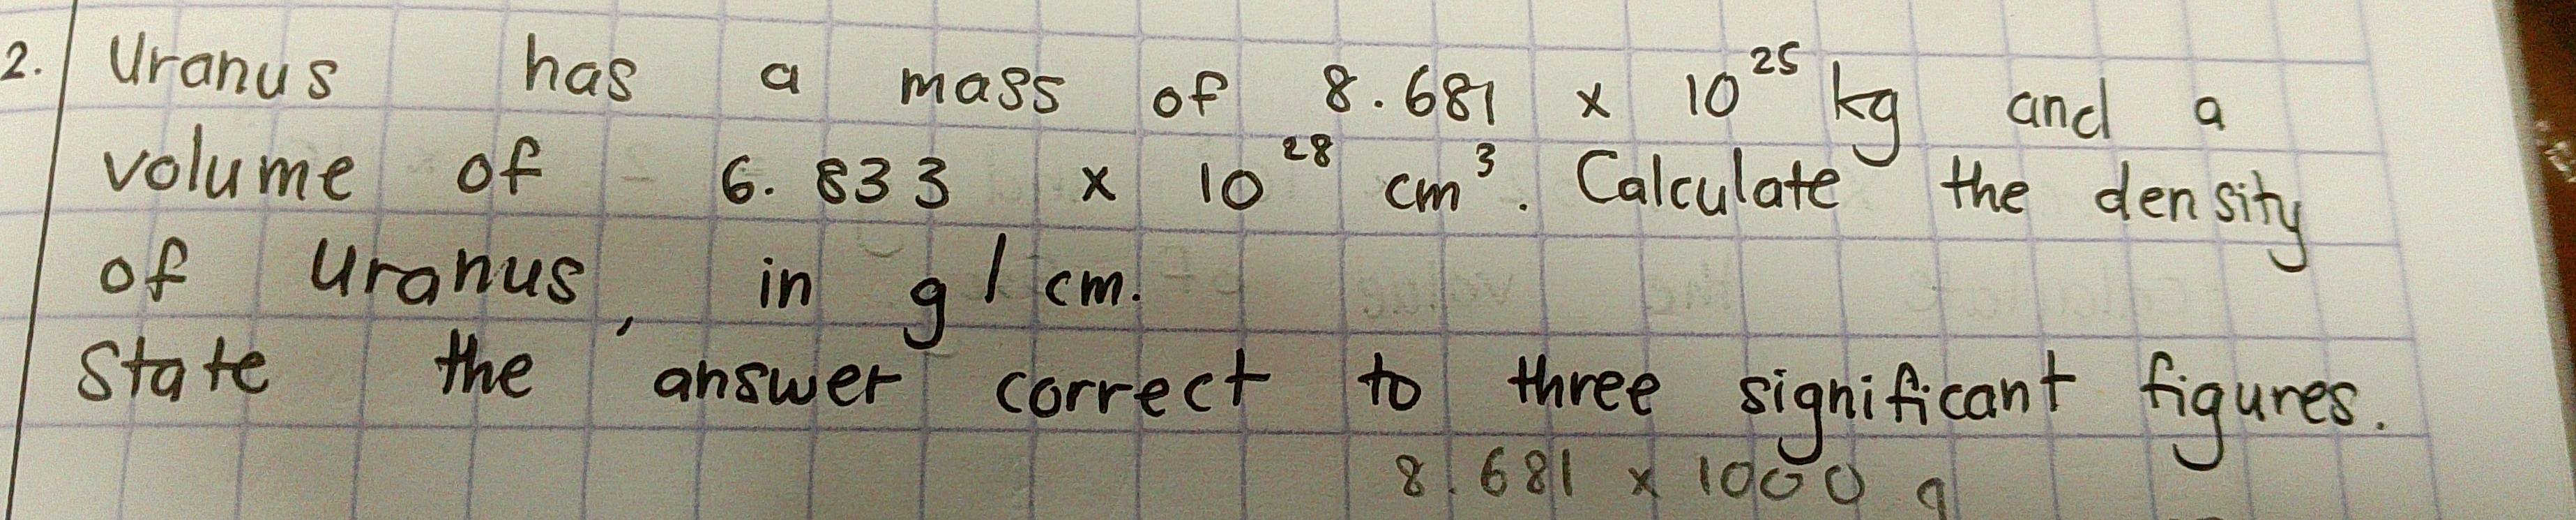 2. Uranus has a mass of 8.681 x 10²⁵ kg and a
volume of 6.833 x 10²⁸ cm³. Calculate the density
of Uranus, in g/cm.
State the answer correct to three significant figures.
8.681 x 1000 g